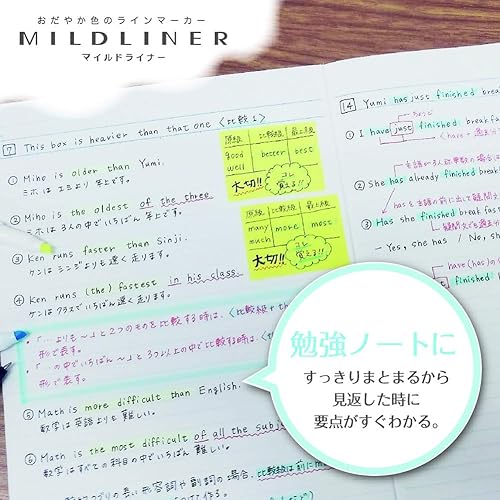 おだやか色のラインマーカー
MILDLINER
マイルドライナー
7 This box is heavier than that one〈比較1〉
① Miho is older than Yumi.
ミホはユミより年上です。
② Miho is the oldest of the three.
ミホは3人の中でいちばん年上です。
③ Ken runs faster than Sinji.
ケンはシンジよりも速く走ります。
④ Ken runs (the) fastest in his class.
ケンはクラスでいちばん速く走ります。
・「…よりも〜」と2つのものを比較する時は、〈比較級+th
形で表す。
・「…の中でいちばん〜」と3つ以上の中で比較する時は、〈th
形で表す。
⑤ Math is more difficult than English.
数学は英語よりも難しい。
⑥ Math is the most difficult of all the subj
数学はすべての科目の中でいちばん難しい。
つづりの長い形容詞や副詞の場合、比較級は前にm
原級 比較級 最上級
good
well better best
大切!! コレ、覚える!!
原級 比較級 最上級
many
much more most
大切!! コレ、覚える!!
14 Yumi has just finished break
ちょうど
① I have just finished breakfa
〈have+過去分
② She has already finished break
hasを主語の前に出て疑問
③ Has she finished breakfa
疑問文でも過去分
- Yes, she has / No, sh
have(has)の
勉強ノートに
すっきりまとまるから
見返した時に
要点がすぐわかる。